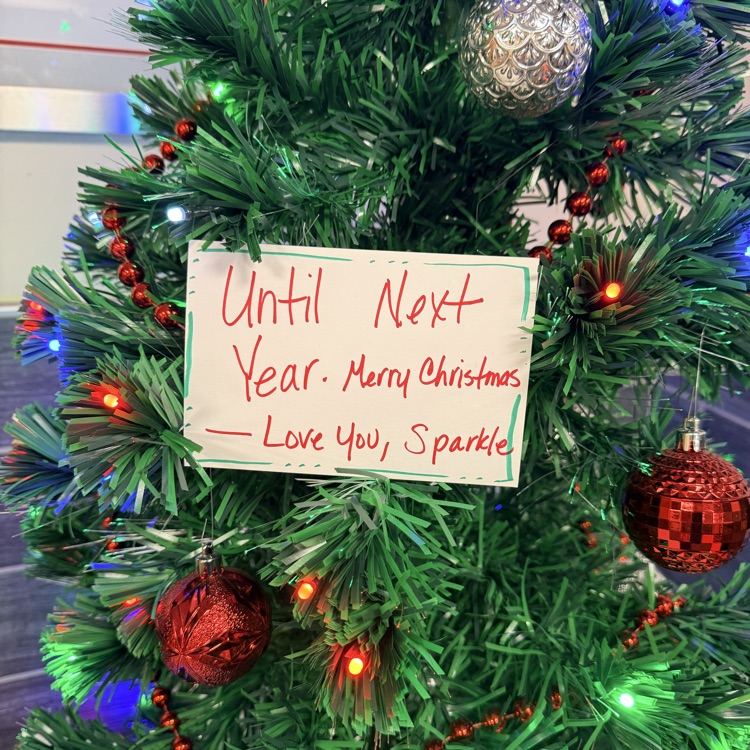 Until Next
Year. Merry Christmas
— Love You, Sparkle